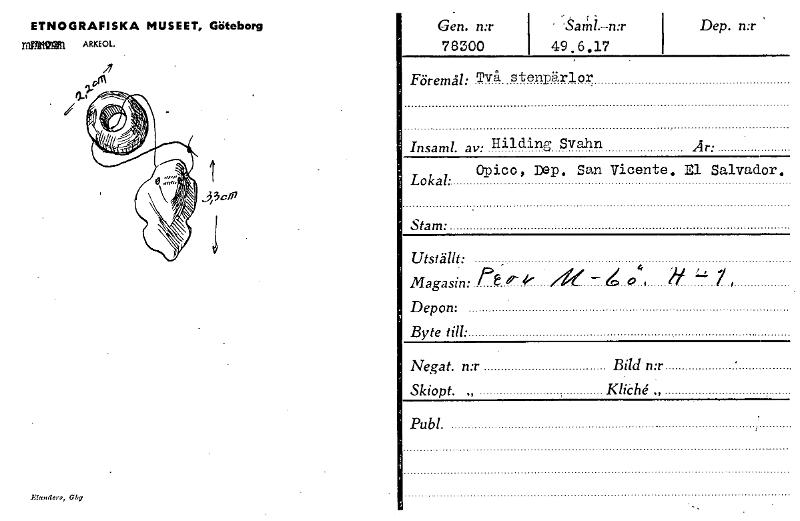 ETNOGRAFISKA MUSEET, Göteborg
ARKEOL.
2,2cm
3,3cm
Elanders, Gbg
Gen. n:r Saml. n:r Dep. n:r
78300 49.6.17
Föremål: Två stenpärlor
Insaml. av: Hilding Svahn År:
Lokal: Opico, Dep. San Vicente. El Salvador.
Stam:
Utställt:
Magasin: M-60. H-1.
Depon:
Byte till:
Negat. n:r Bild n:r
Skiopt. „ Kliché „
Publ.